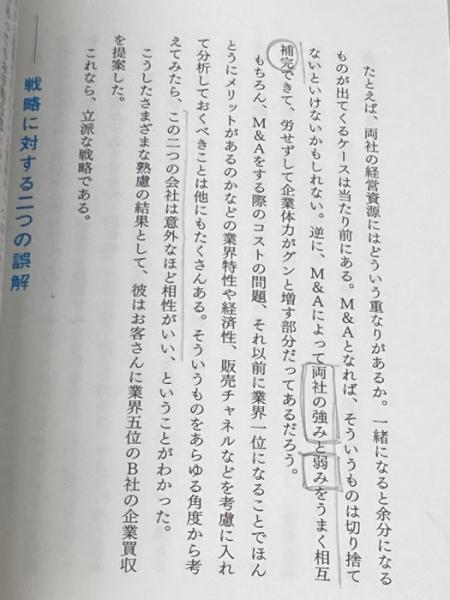 たとえば、両社の経営資源にはどういう重なりがあるか。一緒になると余分になる
ものが出てくるケースは当たり前にある。M&Aとなれば、そういうものは切り捨て
ないといけないかもしれない。逆に、M&Aによって両社の強みと弱みをうまく相互
補完できて、労せずして企業体力がグンと増す部分だってあるだろう。
もちろん、M&Aをする際のコストの問題、それ以前に業界一位になることでほん
とうにメリットがあるのかなどの業界特性や経済性、販売チャネルなどを考慮に入れ
て分析しておくべきことは他にもたくさんある。そういうものをあらゆる角度から考
えてみたら、この二つの会社は意外なほど相性がいい、ということがわかった。
こうしたさまざまな熟慮の結果として、彼はお客さんに業界五位のB社の企業買収
を提案した。
これなら、立派な戦略である。
戦略に対する二つの誤解